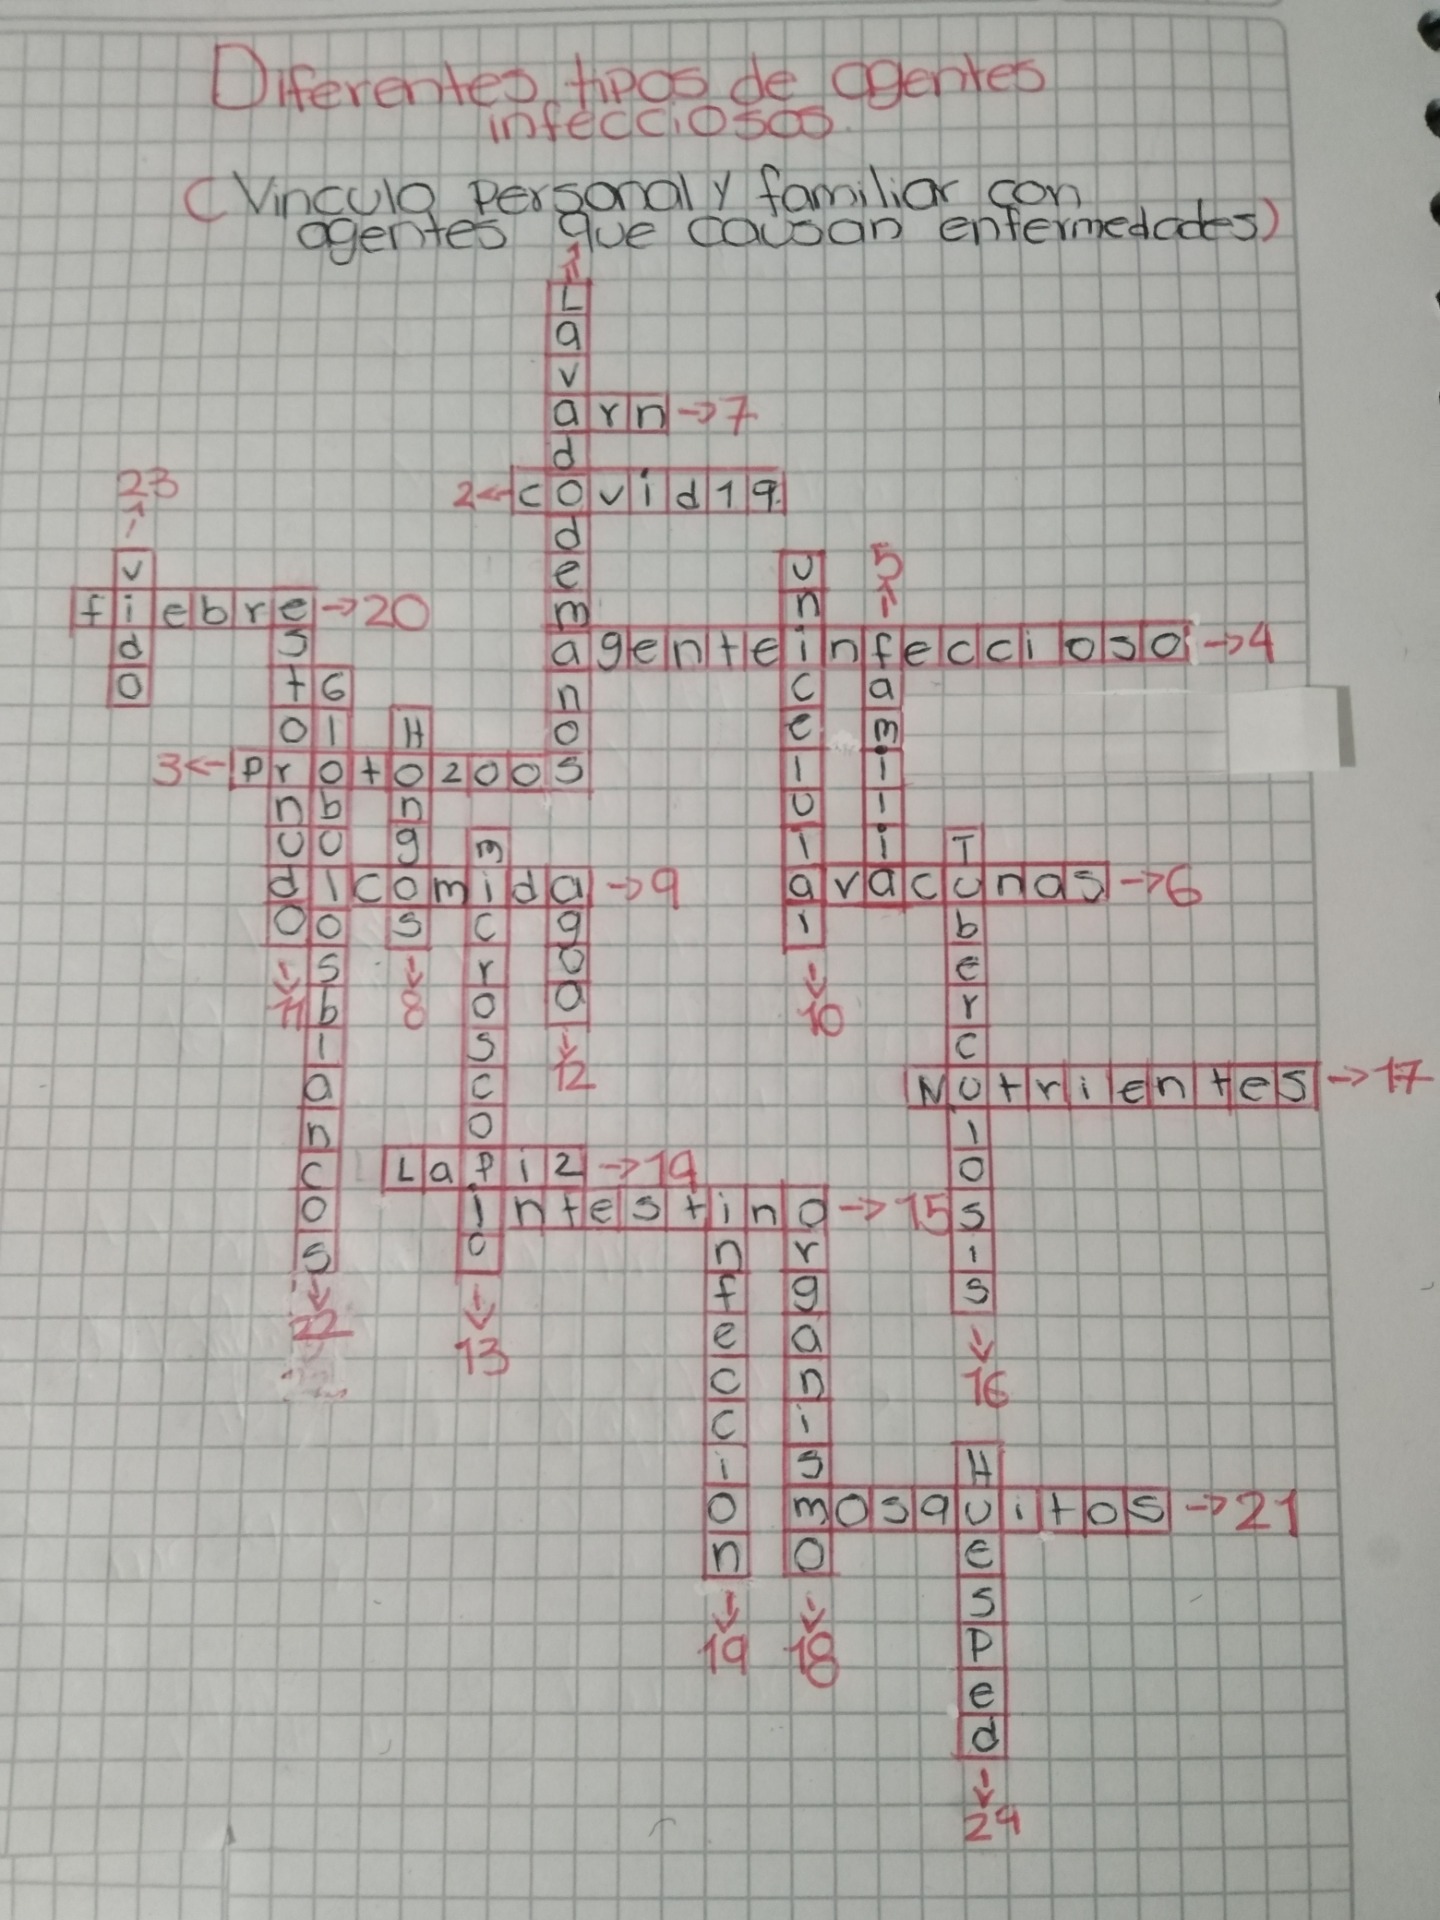 Diferentes tipos de agentes
infecciosos.
(Vinculo Personal y familiar con
agentes que causan enfermedades)
1
Lavadodemanos
arn → 7
23
2 ← covid19
vido
5
fiebre → 20
estornudo
agenteinfeccioso → 4
unicelulal
familia
Globulosblancos
Hongos
3 ← Protozoos
microscopio
Tuberculosis
comida → 9
avacunas → 6
agua
11
8
10
12
Nutrientes → 17
Lapiz → 19
Intestino → 15
infeccion
organismo
22
13
16
Huesped
mosquitos → 21
19
18
24